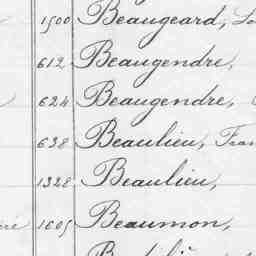 1500 Beaugeard,
612 Beaugendre,
624 Beaugendre,
638 Beaulieu,
1328 Beaulieu,
1605 Beaumon,